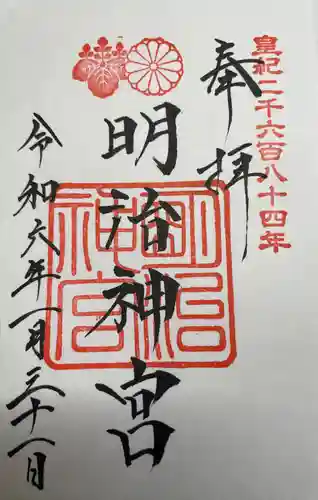 皇紀二千六百八十四年
奉拝
明治神宮
令和六年一月三十一日
明治神宮